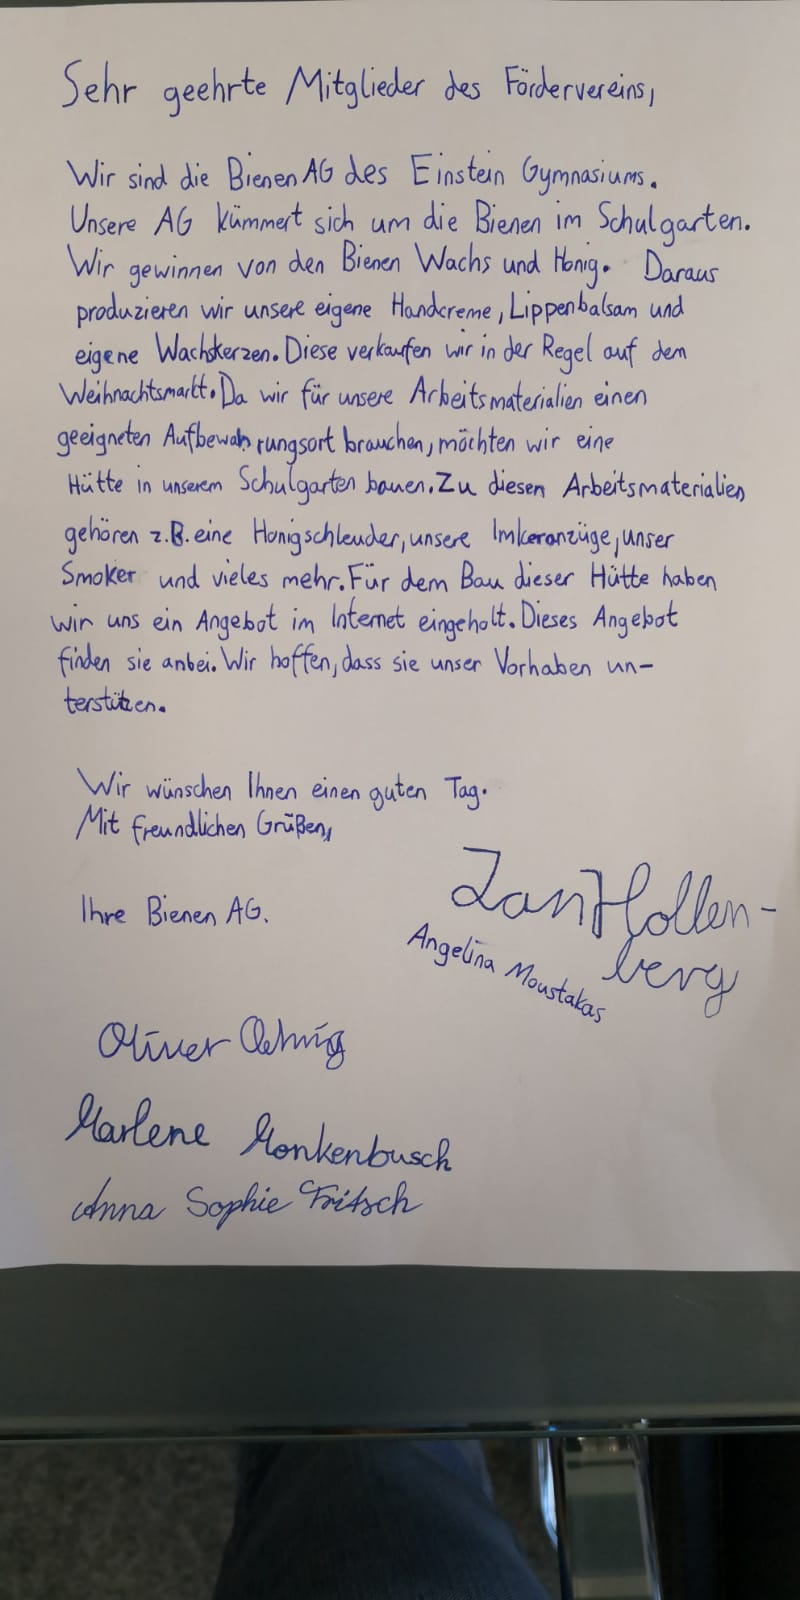 Sehr geehrte Mitglieder des Fördervereins,
Wir sind die Bienen AG des Einstein Gymnasiums.
Unsere AG kümmert sich um die Bienen im Schulgarten.
Wir gewinnen von den Bienen Wachs und Honig. Daraus
produzieren wir unsere eigene Handcreme, Lippenbalsam und
eigene Wachskerzen. Diese verkaufen wir in der Regel auf dem
Weihnachtsmarkt. Da wir für unsere Arbeitsmaterialien einen
geeigneten Aufbewahrungsort brauchen, möchten wir eine
Hütte in unserem Schulgarten bauen. Zu diesen Arbeitsmaterialien
gehören z.B. eine Honigschleuder, unsere Imkeranzüge, unser
Smoker und vieles mehr. Für dem Bau dieser Hütte haben
wir uns ein Angebot im Internet eingeholt. Dieses Angebot
finden sie anbei. Wir hoffen, dass sie unser Vorhaben un-
terstützen.
Wir wünschen Ihnen einen guten Tag.
Mit freundlichen Grüßen,
Ihre Bienen AG.
Jan Hollen-
berg
Angelina Moustakas
Oliver
Marlene Monkenbusch
Anna Sophie Fritsch